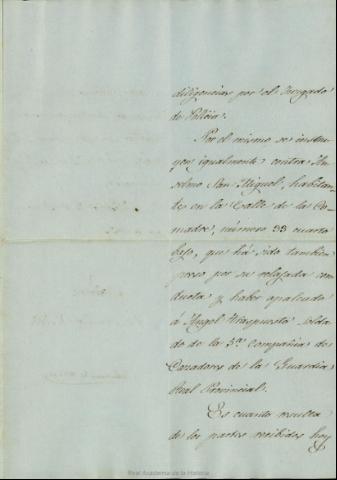 diligencias por el Juzgado
de Policia.
Por el mismo se instru-
yen igualmente contra An-
selmo San Miguel, habitan-
te en la Calle de la Co-
madre, número 33 cuarto
bajo, que há sido tambien
preso por su relajada con-
ducta y haber apaleado
á Angel Traspuesto, solda-
do de la 3ª compañia de
Cazadores de la Guardia
Real Provincial.
Es cuanto resulta
de los partes recibidos hoy
Real Academia de la Historia